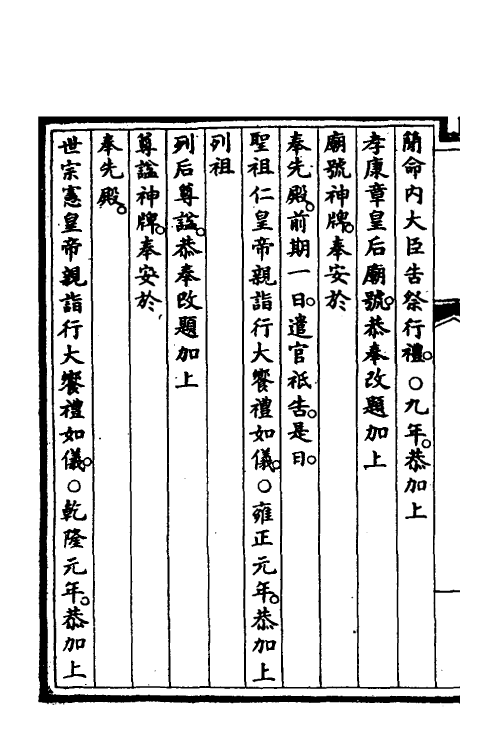 簡命内大臣告祭行禮。○九年。恭加上
孝康章皇后廟號。恭奉改題加上
廟號神牌。奉安於
奉先殿。前期一日。遣官祗告。是日。
聖祖仁皇帝親詣行大饗禮如儀。○雍正元年。恭加上
列祖
列后尊諡。恭奉改題加上
尊諡神牌。奉安於
奉先殿。
世宗憲皇帝親詣行大饗禮如儀。○乾隆元年。恭加上